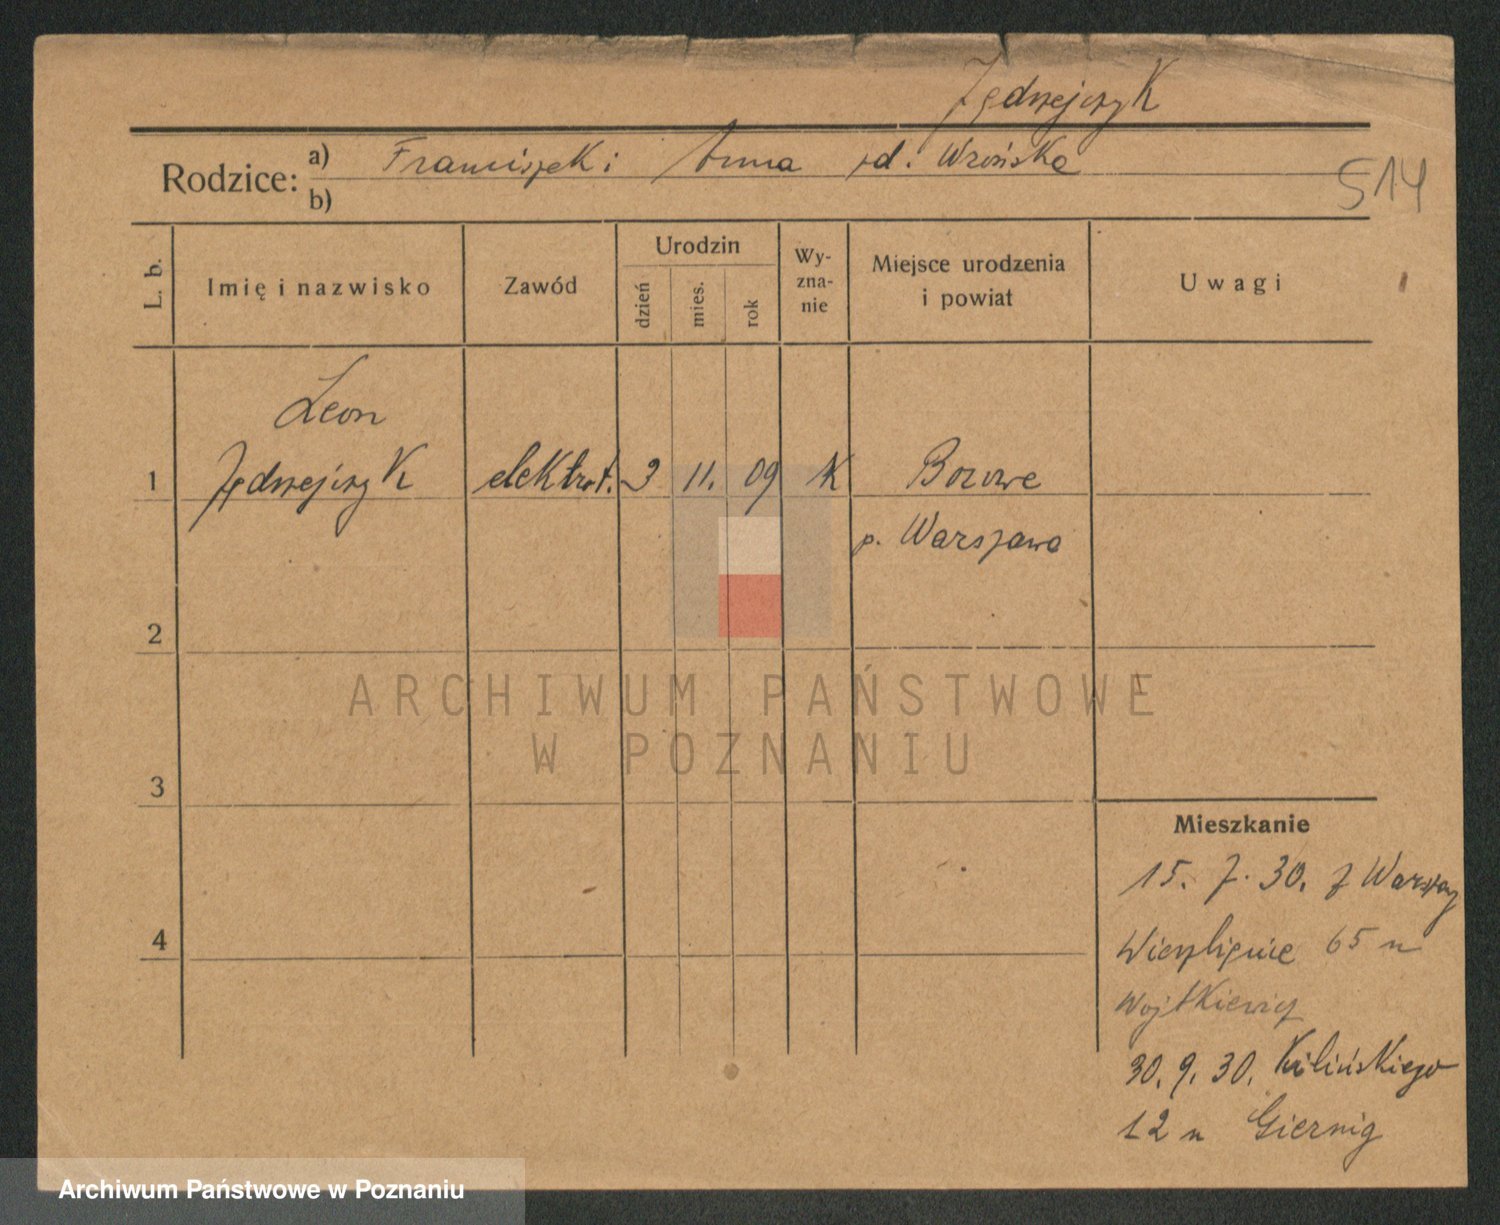 Jędrzejczyk
Rodzice: a) Franciszek i Anna zd. Wrońska
b)
514
L. b.
Imię i nazwisko
Zawód
Urodzin
dzień
mies.
rok
Wy-
zna-
nie
Miejsce urodzenia
i powiat
Uwagi
Leon
1 Jędrzejczyk elektrot. 3 11. 09 K Borowe
p. Warszawa
2
ARCHIWUM PAŃSTWOWE
W POZNANIU
3
Mieszkanie
15. 7. 30. z Warszawy
4
65 u
Wojtkiewicz
30. 9. 30. Kilińskiego
12 u Giernig
Archiwum Państwowe w Poznaniu